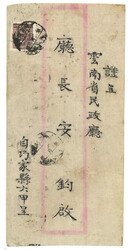 謹呈
雲南省民政廳
廳長安鈞啟
自巧家縣六甲呈